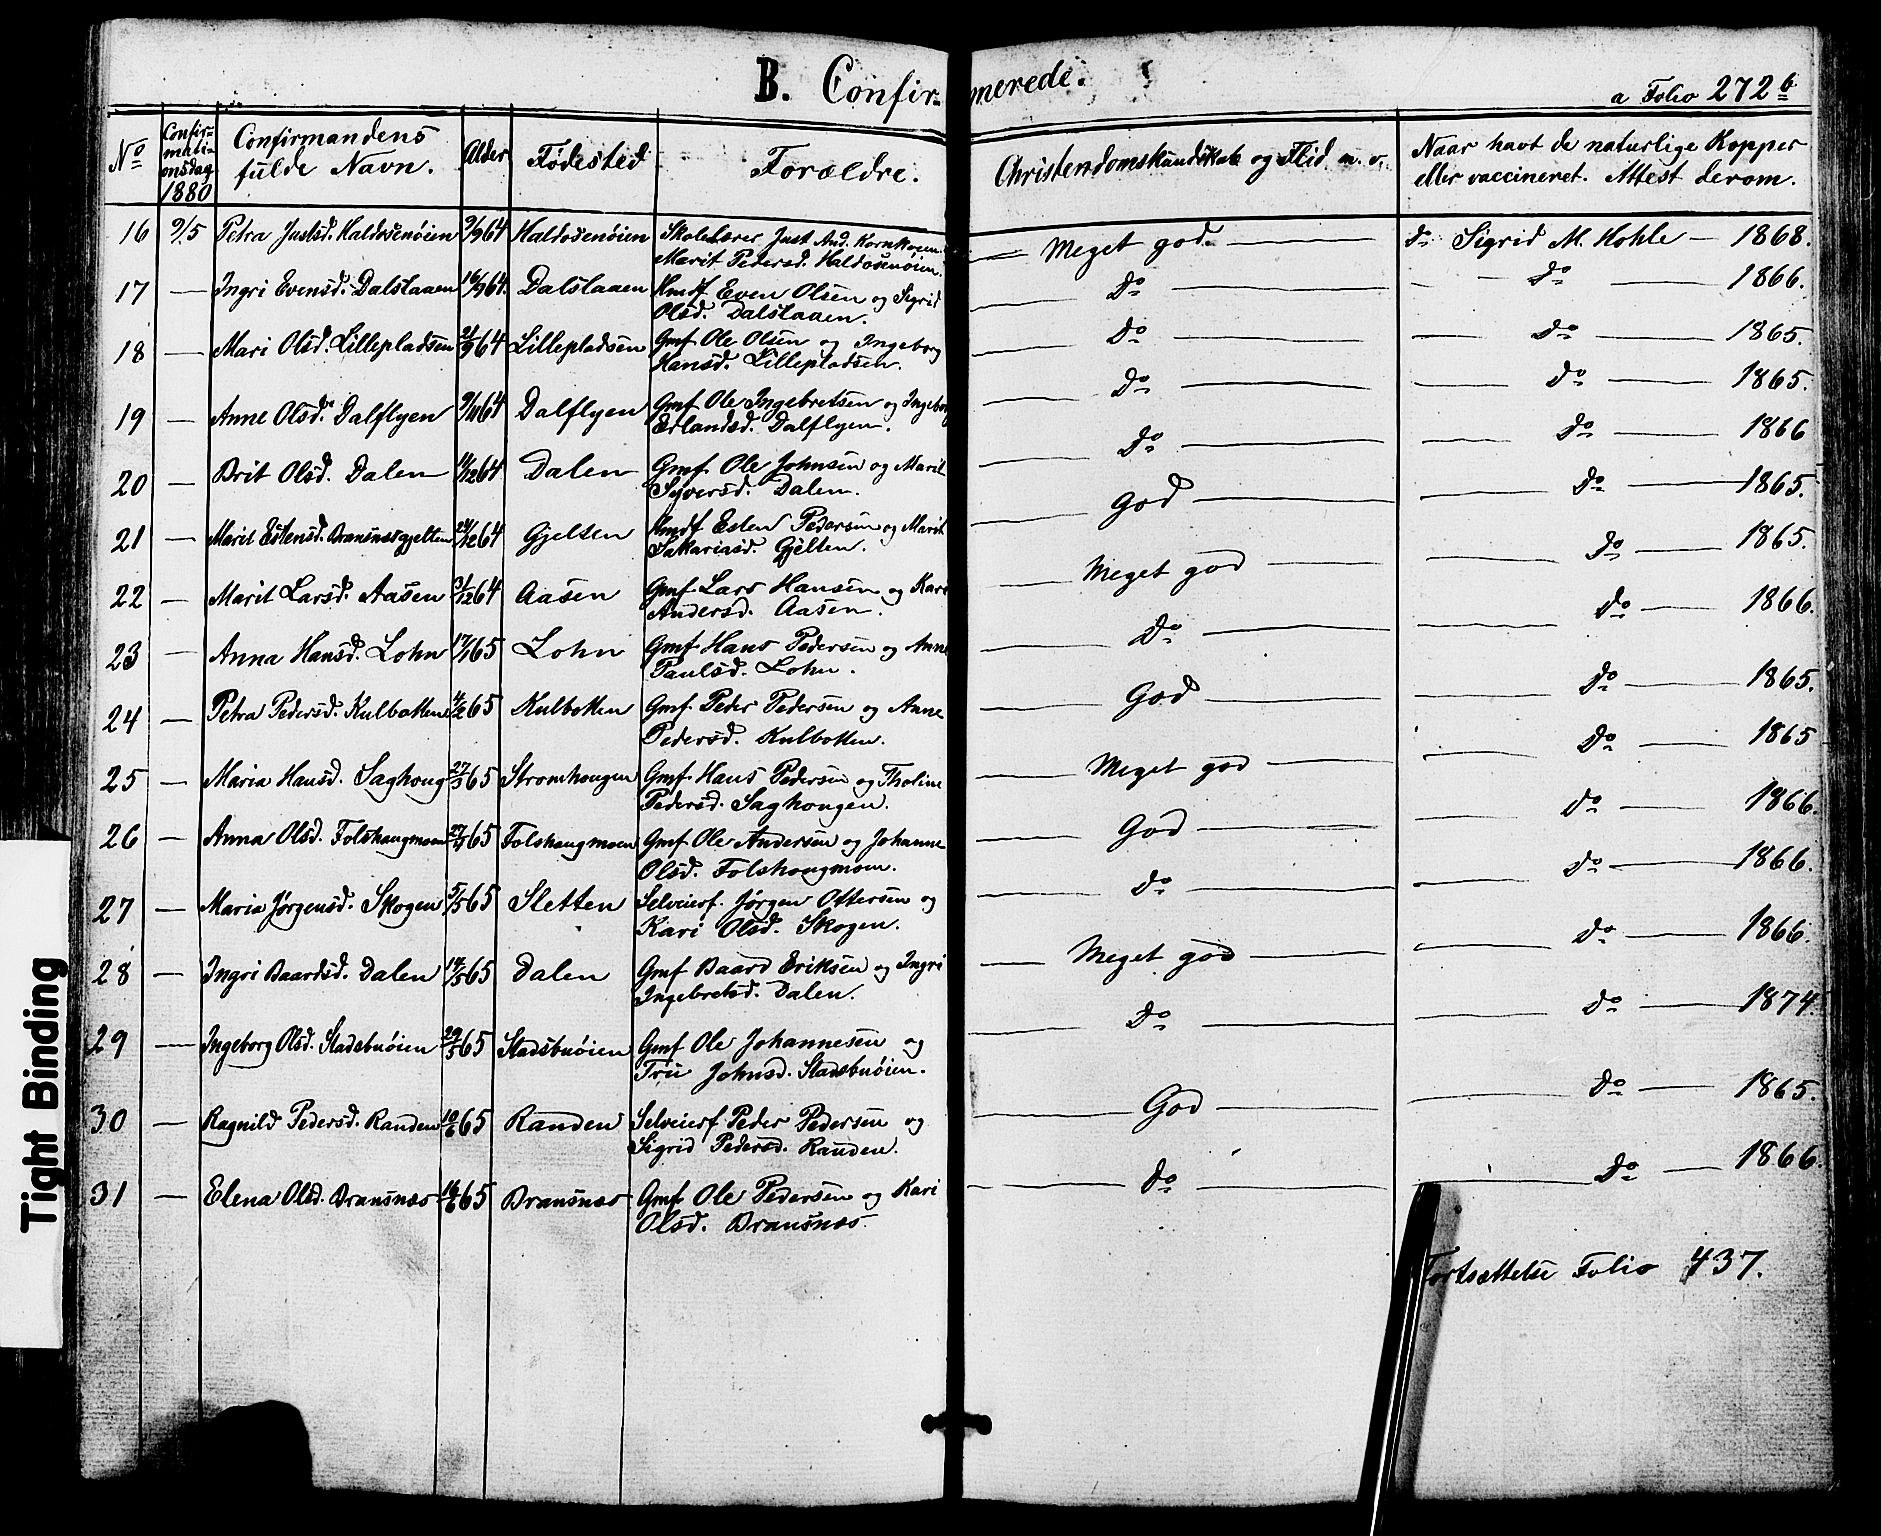 B. Confirmerede.
a Folio 272b
No
Confirmationsdag 1880
Confirmandens fulde Navn.
Alder
Fødested
Forældre.
Christendomskundskab og Flid m. v.
Naar havt de naturlige Kopper eller vaccineret. Attest derom.
16 9/5 Petra Justsd. Haldosenøien 9/9 64 Haldosenøien Skolelærer Just And. Kornkoien — Meget god. — do Sigrid M. Hohle — 1868.
Marit Pedersd. Haldosenøien.
17 — Ingri Evensd. Dalslaaen 16/9 64. Dalslaaen Hmdf Even Olsen og Sigrid — Do — — Do — 1866.
Olsd. Dalslaaen.
18 — Mari Olsd. Lillepladsen 21/9 64 Lillepladsen Gmf Ole Olsen og Ingeborg — Do — — Do — 1865.
Hansd. Lillepladsen.
19 — Anne Olsd. Dalflyen 9/11 64 Dalflyen Gmf Ole Ingebretsen og Ingeborg — Do — — Do — 1865.
Erlandsd. Dalflyen.
20 — Brit Olsd. Dalen 11/12 64 Dalen Gmf Ole Johnsen og Marit — Do — — Do — 1866
Syversd. Dalen.
21 — Marit Estensd. Brænsnesgjelten 24/12 64 Gjelten Hmdf Esten Pedersen og Marit — God — — Do — 1865.
Sakariasd. Gjelten.
22 — Marit Larsd. Aasen 31/12 64 Aasen Gmf Lars Hansen og Kari — Meget god — — Do — 1865.
Andersd. Aasen.
23 — Anna Hansd. Lohn 17/1 65 Lohn Gmf Hans Pedersen og Anne — Do — — Do — 1866.
Paulsd. Lohn.
24 — Petra Pedersd. Kulbotten 11/2 65 Kulbotten Gmf Peder Pedersen og Anne — God — — Do — 1865.
Pedersd. Kulbotten.
25 — Maria Hansd. Saghoug 27/3 65 Stromhougen Gmf Hans Pedersen og Tholine — Meget god — — Do — 1865
Pedersd. Saghougen.
26 — Anna Olsd. Folshaugmoen 65 Folshaugmoen Gmf Ole Andersen og Johanne — God — — Do — 1866.
Olsd. Folshougmoen.
27 — Maria Jørgensd. Skogen 5/5 65 Sletten Selveierf. Jørgen Ottersen og — Do — — Do — 1866.
Kari Olsd. Skogen.
28 — Ingri Baardsd. Dalen 14/5 65 Dalen Gmf Baard Eriksen og Ingri — Meget god — — Do — 1866.
Ingebretsd. Dalen.
29 — Ingeborg Olsd. Stadsbuøien 29/5 65 Stadsbuøien Gmf Ole Johannesen og — Do — — Do — 1874.
Tru Johnsd. Stadsbuøien.
30 — Ragnild Pedersd. Randen 10/6 65 Randen Selveierf Peder Pedersen og — God — — Do — 1865.
Sigrid Pedersd. Randen.
31 — Elena Olsd. Brænsnæs 16/6 65 Brænsnæs Gmf Ole Pedersen og Kari — Do — — Do — 1866.
Olsd. Brænsnæs
Fortsættelse Folio 437.
Tight Binding